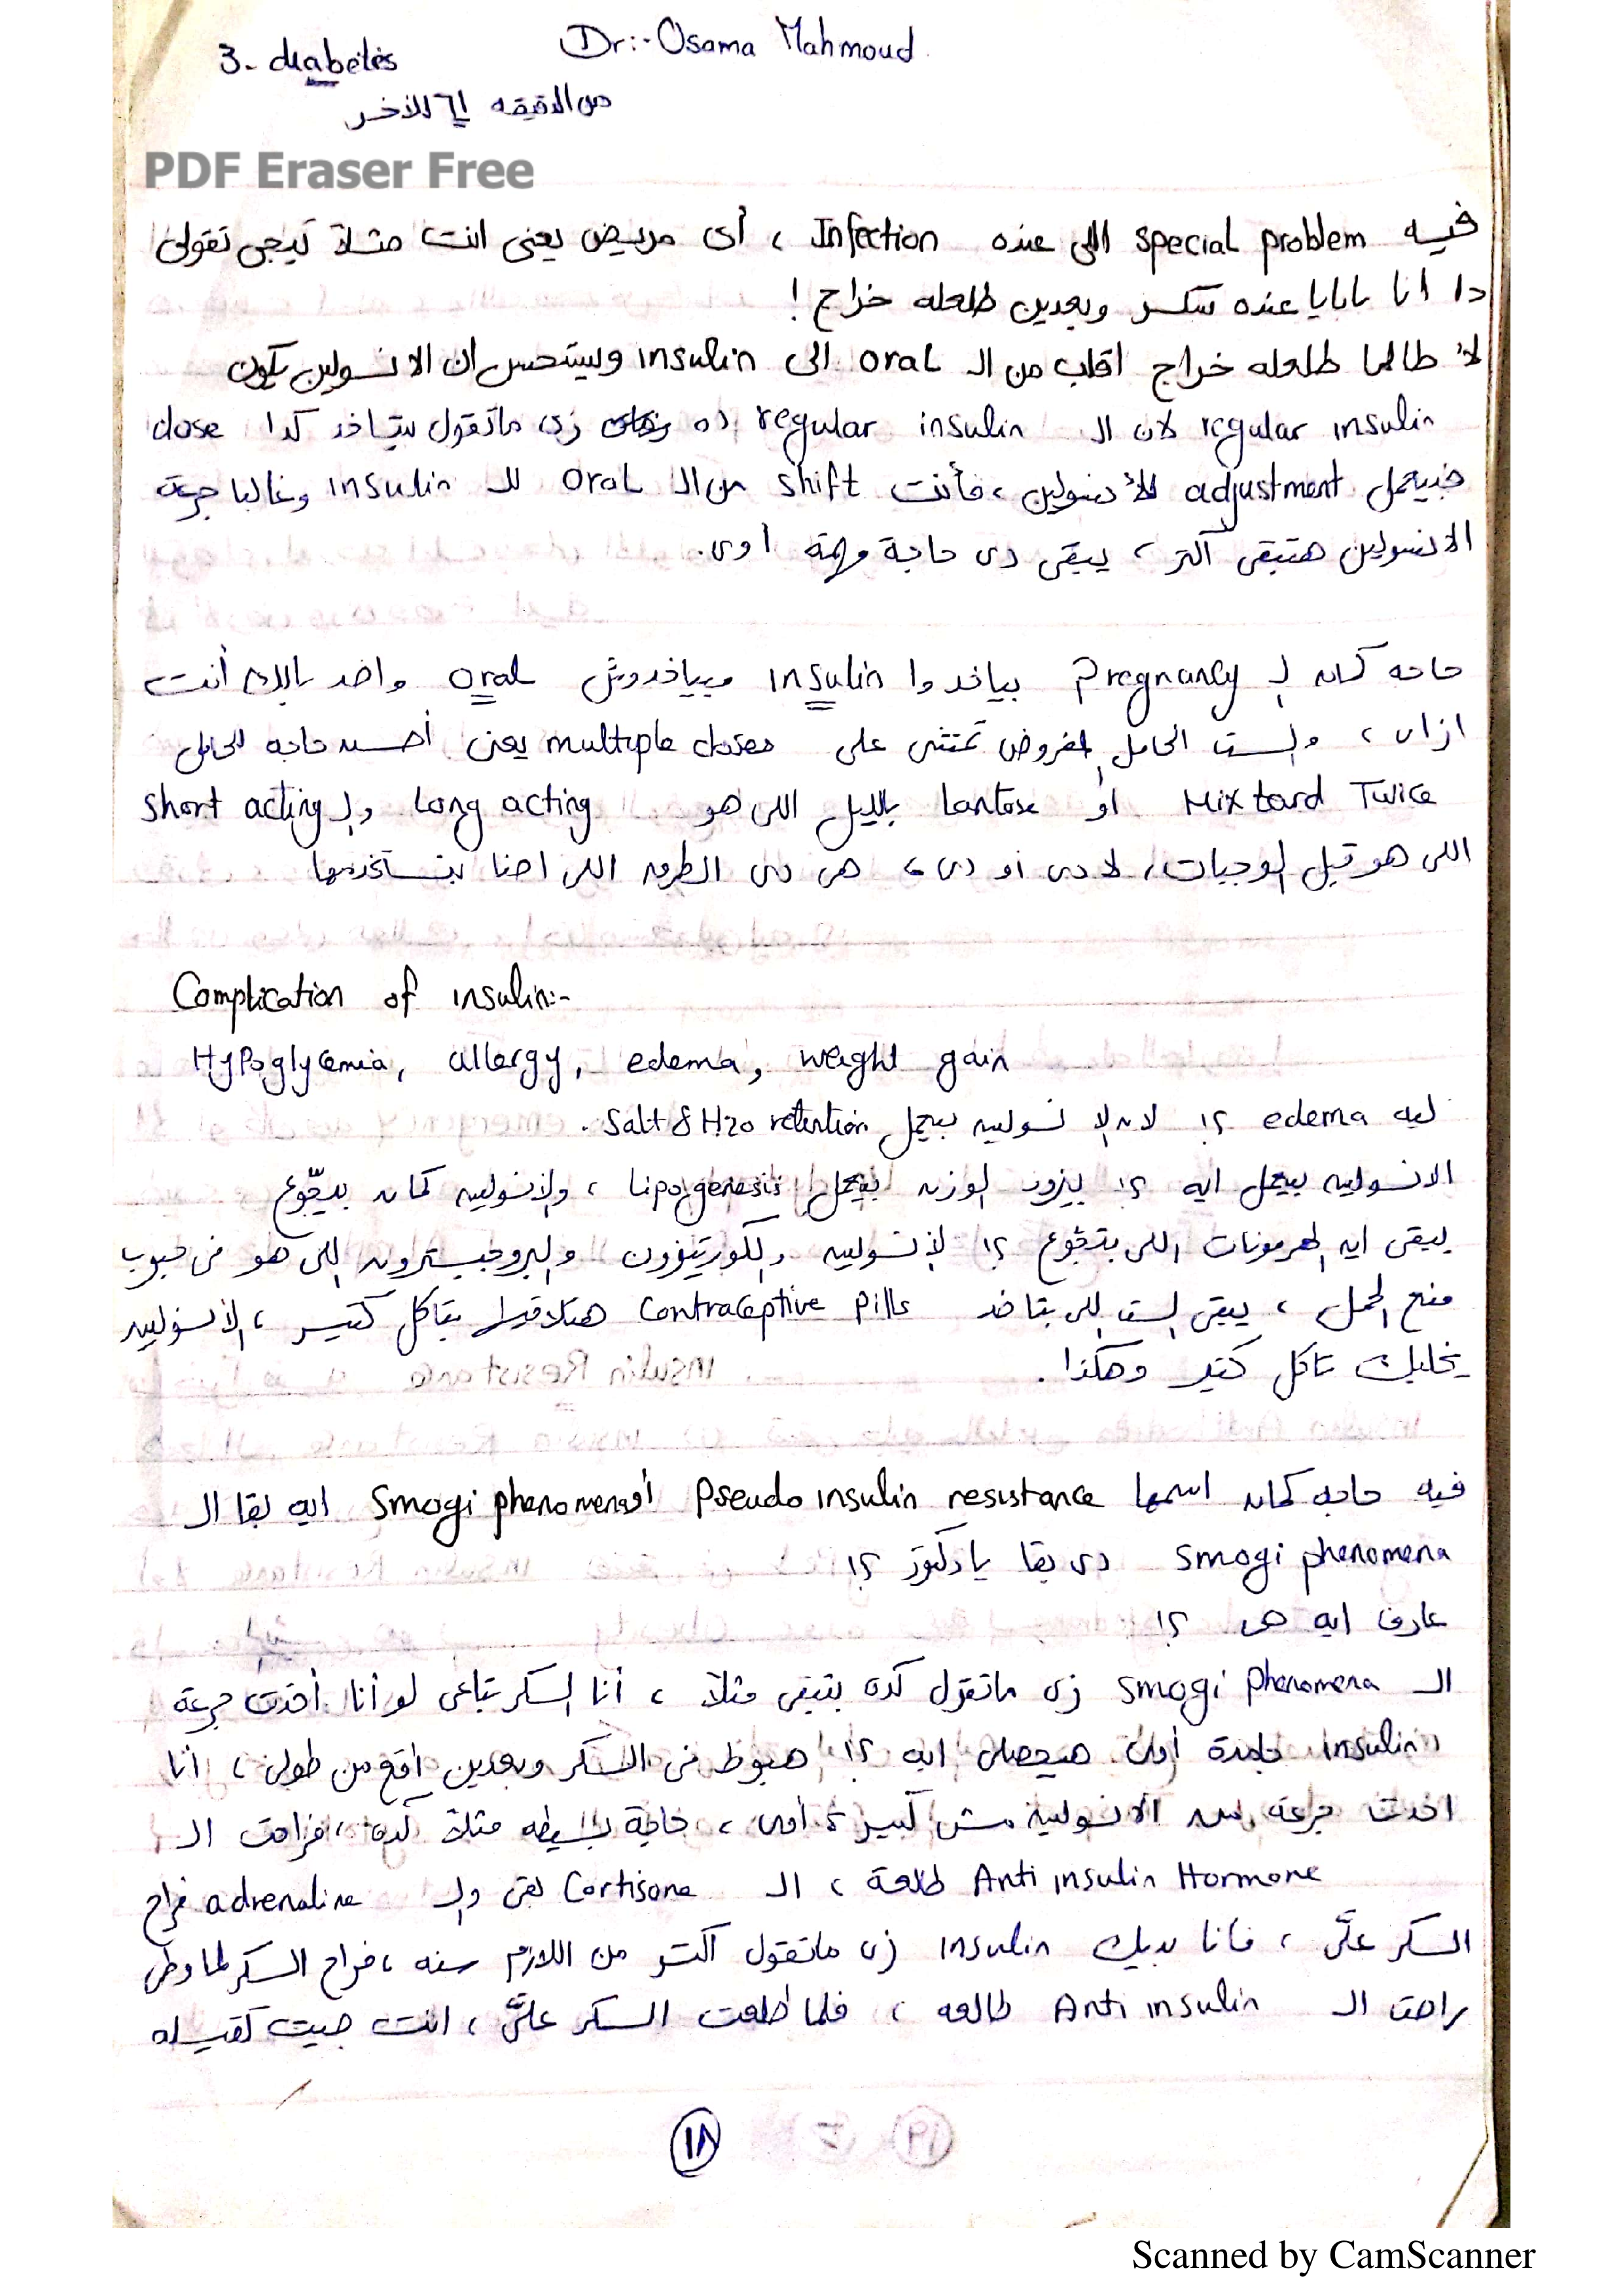 Dr:- Osama Mahmoud
3- diabetes
من الدقيقه 61 للأخر
PDF Eraser Free
فيه special problem اللى عنده Infection ، أى مريض يعنى انت مثلاً تيجى تقولى
دا انا بابايا عنده سكر وبعدين طلعله خراج !
لأ طالما طلعله خراج اقلب من الـ oral الى insulin ويستحسن ان الانسولين يكون
regular insulin لان الـ regular insulin ده زى ماتقول بيتاخد كدا dose
فبيعمل adjustment للأنسولين ، فأنت shift من الـ oral للـ insulin وغالبا جرعة
الانسولين هتبقى أكتر ، يبقى دى حاجة مهمة اوى.
حاجه كمان لـ Pregnancy بياخدوا insulin مبياخدوش oral واخد بالك أنت
ازاى ، والست الحامل المفروض تمشى على multiple doses يعنى أحسن حاجه للحامل
Mixtard Twice أو Lantose بالليل اللى هو Long acting والـ short acting
اللى هو قبل الوجبات، لا دى او دى ، هى دى الطرق اللى احنا بنستخدمها
Complication of insulin:-
Hypoglycemia, allergy, edema, weight gain
ليه edema ؟! لان الانسولين بيعمل Salt & H2o retention .
الانسولين بيعمل ايه ؟! بيزود الوزن بيعمل Lipogenesis ، والانسولين كمان بيجّوع
يبقى ايه الهرمونات اللى بتجّوع ؟! الانسولين والكورتيزون والبروجيسترون اللى هو فى حبوب
منع الحمل ، يبقى الست اللى بتاخد Contraceptive pills هتلاقيها بتاكل كتير ، الانسولين
يخليك تاكل كتير وهكذا .
فيه حاجه كمان اسمها Pseudo insulin resistance أو Smogi phenomena ايه بقا الـ
Smogi phenomena دى بقا يا دكتور ؟!
عارف ايه هى ؟!
الـ Smogi phenomena زى ماتقول كده بتبقى مثلاً ، أنا السكر بتاعى لو أنا أخدت جرعة
insulin جامدة أوى هيحصل ايه ؟! هبوط فى السكر وبعدين اقع من طولى ، أنا
اخدت جرعة من الانسولين مش كبيرة اوى ، حاجة بسيطه مثلاً كده ، فراحت الـ
Anti insulin Hormone طالعة ، الـ Cortisone بقى والـ adrenaline فراح
السكر علّى ، فانا بديك insulin زى ماتقول اكتر من اللازم سنه ، فراح السكر لما وطى
راحت الـ Anti insulin طالعه ، فلما طلعت السكر علّى ، انت جيت تقيسله
١٨
Scanned by CamScanner